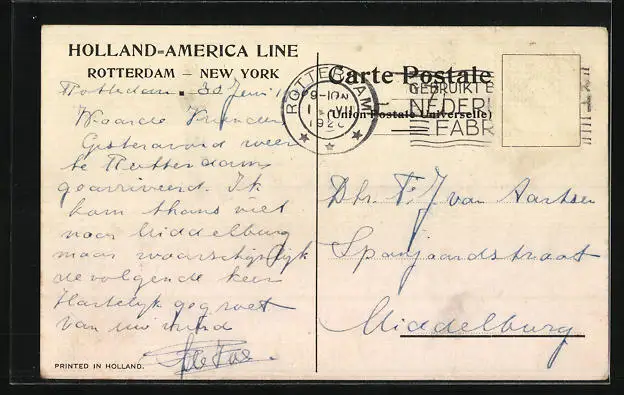 HOLLAND=AMERICA LINE
ROTTERDAM – NEW YORK
Rotterdam 30 Juni
Waarde Vrienden
Gisteravond weer
te Rotterdam
gearriveerd. Ik
kom thans niet
naar Middelburg
maar waarschijnlijk
de volgende keer
Hartelijk gegroet
van uw vriend
PRINTED IN HOLLAND.
Carte Postale
(Union Postale Universelle)
ROTTERDAM
9-10N
VII
GEBRUIKT
NEDERL
FABR
Dhr. F. J van Aartsen
Spanjaardstraat
Middelburg